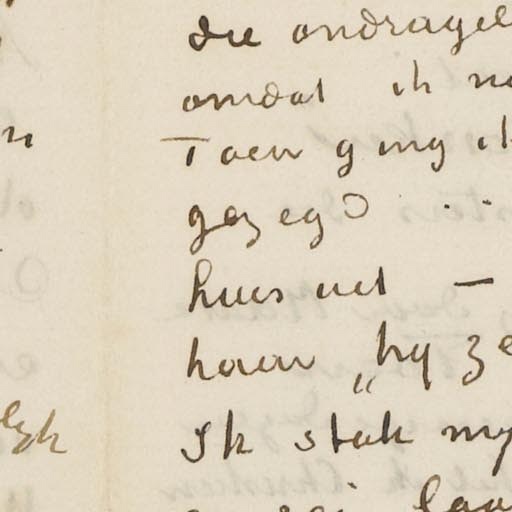 die ondragel
omdat ik no
Toen ging ik
gezegd . . .
huis uit —
haar „hy ze
Ik stak my